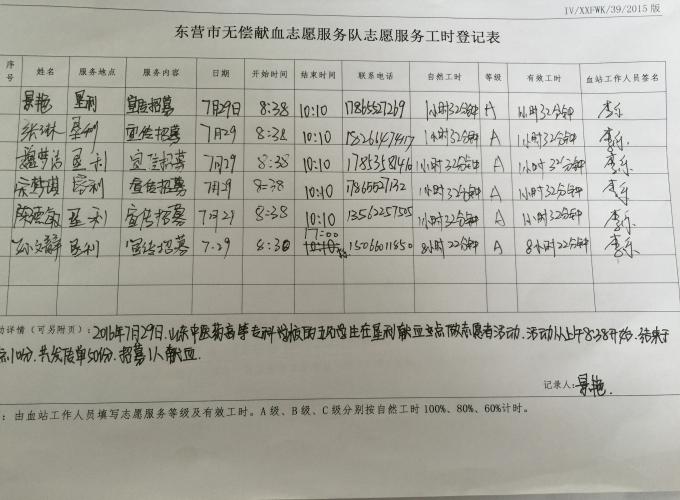 IV/XXFWK/39/2015 版
东营市无偿献血志愿服务队志愿服务工时登记表
序号 姓名 服务地点 服务内容 日期 开始时间 结束时间 联系电话 自然工时 等级 有效工时 血站工作人员签名
景艳 垦利 宣传招募 7月29日 8:38 10:10 17865527269 1小时32分钟 A 1小时32分钟 李乐
张琳 垦利 宣传招募 7月29 8:38 10:10 1小时32分钟 A 1小时32分钟 李乐
垦利 宣传招募 7月29 8:38 10:10 1小时32分钟 A 1小时32分钟 李乐
垦利 宣传招募 7月29 8:38 10:10 1小时32分钟 A 1小时32分钟 李乐
陈德敏 垦利 宣传招募 7月29 8:38 10:10 13562257505 1小时32分钟 A 1小时32分钟 李乐
垦利 宣传招募 7.29 8:30 17:00 15066011850 8小时22分钟 A 8小时22分钟 李乐
动详情（可另附页）：2016年7月29日，山东中医药高等专科学校的五名学生在垦利献血点做志愿者活动，活动从上午8:38开始，结束于
10分，共发传单50份，招募1人献血．
记录人：景艳．
：由血站工作人员填写志愿服务等级及有效工时。A 级、B 级、C 级分别按自然工时 100%、80%、60%计时。